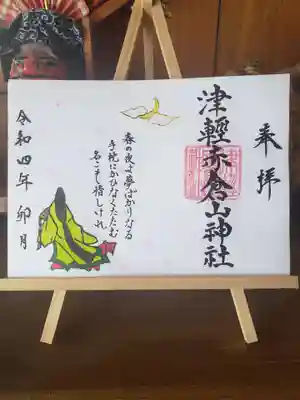 来拝
津軽赤倉山神社
春の夜は夢ばかりなる
手枕にかひなくたたむ
名こそ惜しけれ
令和四年 卯月